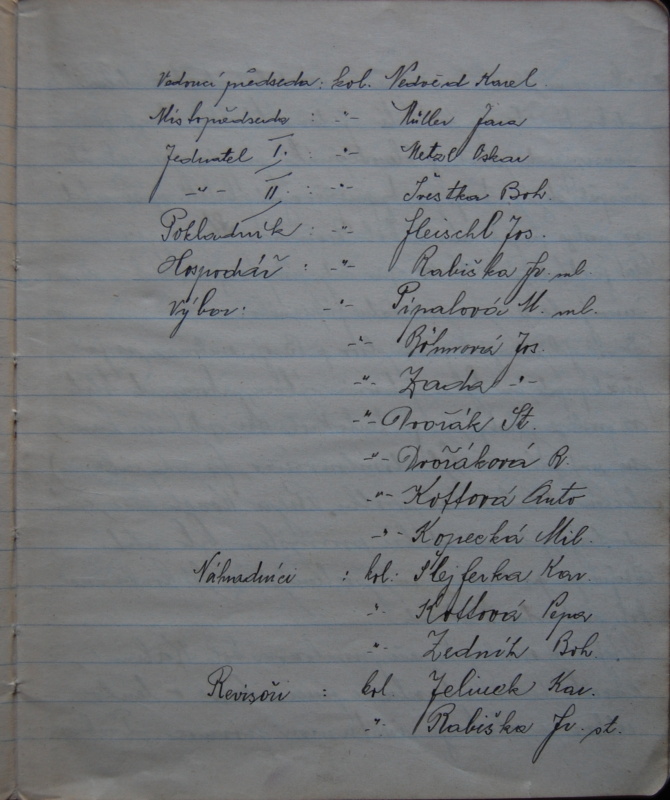 Vedoucí předseda: kol. Nedvěd Karel
Místopředseda : -"- Müller Jara
Jednatel I. : -"- Metzl Oskar
-"- II. : -"- Šrestka Boh.
Pokladník : -"- Fleischl Jos.
Hospodář : -"- Rabiška Fr. ml.
Výbor: -"- Pipalová M. ml.
-"- Böhmová Jos.
-"- Zada -"-
-"- Dvořák St.
-"- Dvořáková R.
-"- Kottová Anto
-"- Kopecká Mil.
Náhradníci : kol. Šlejferka Kar.
" Kottová Pepa
" Zedník Boh.
Revisoři : kol. Jelinek Kar.
" Rabiška Fr. st.